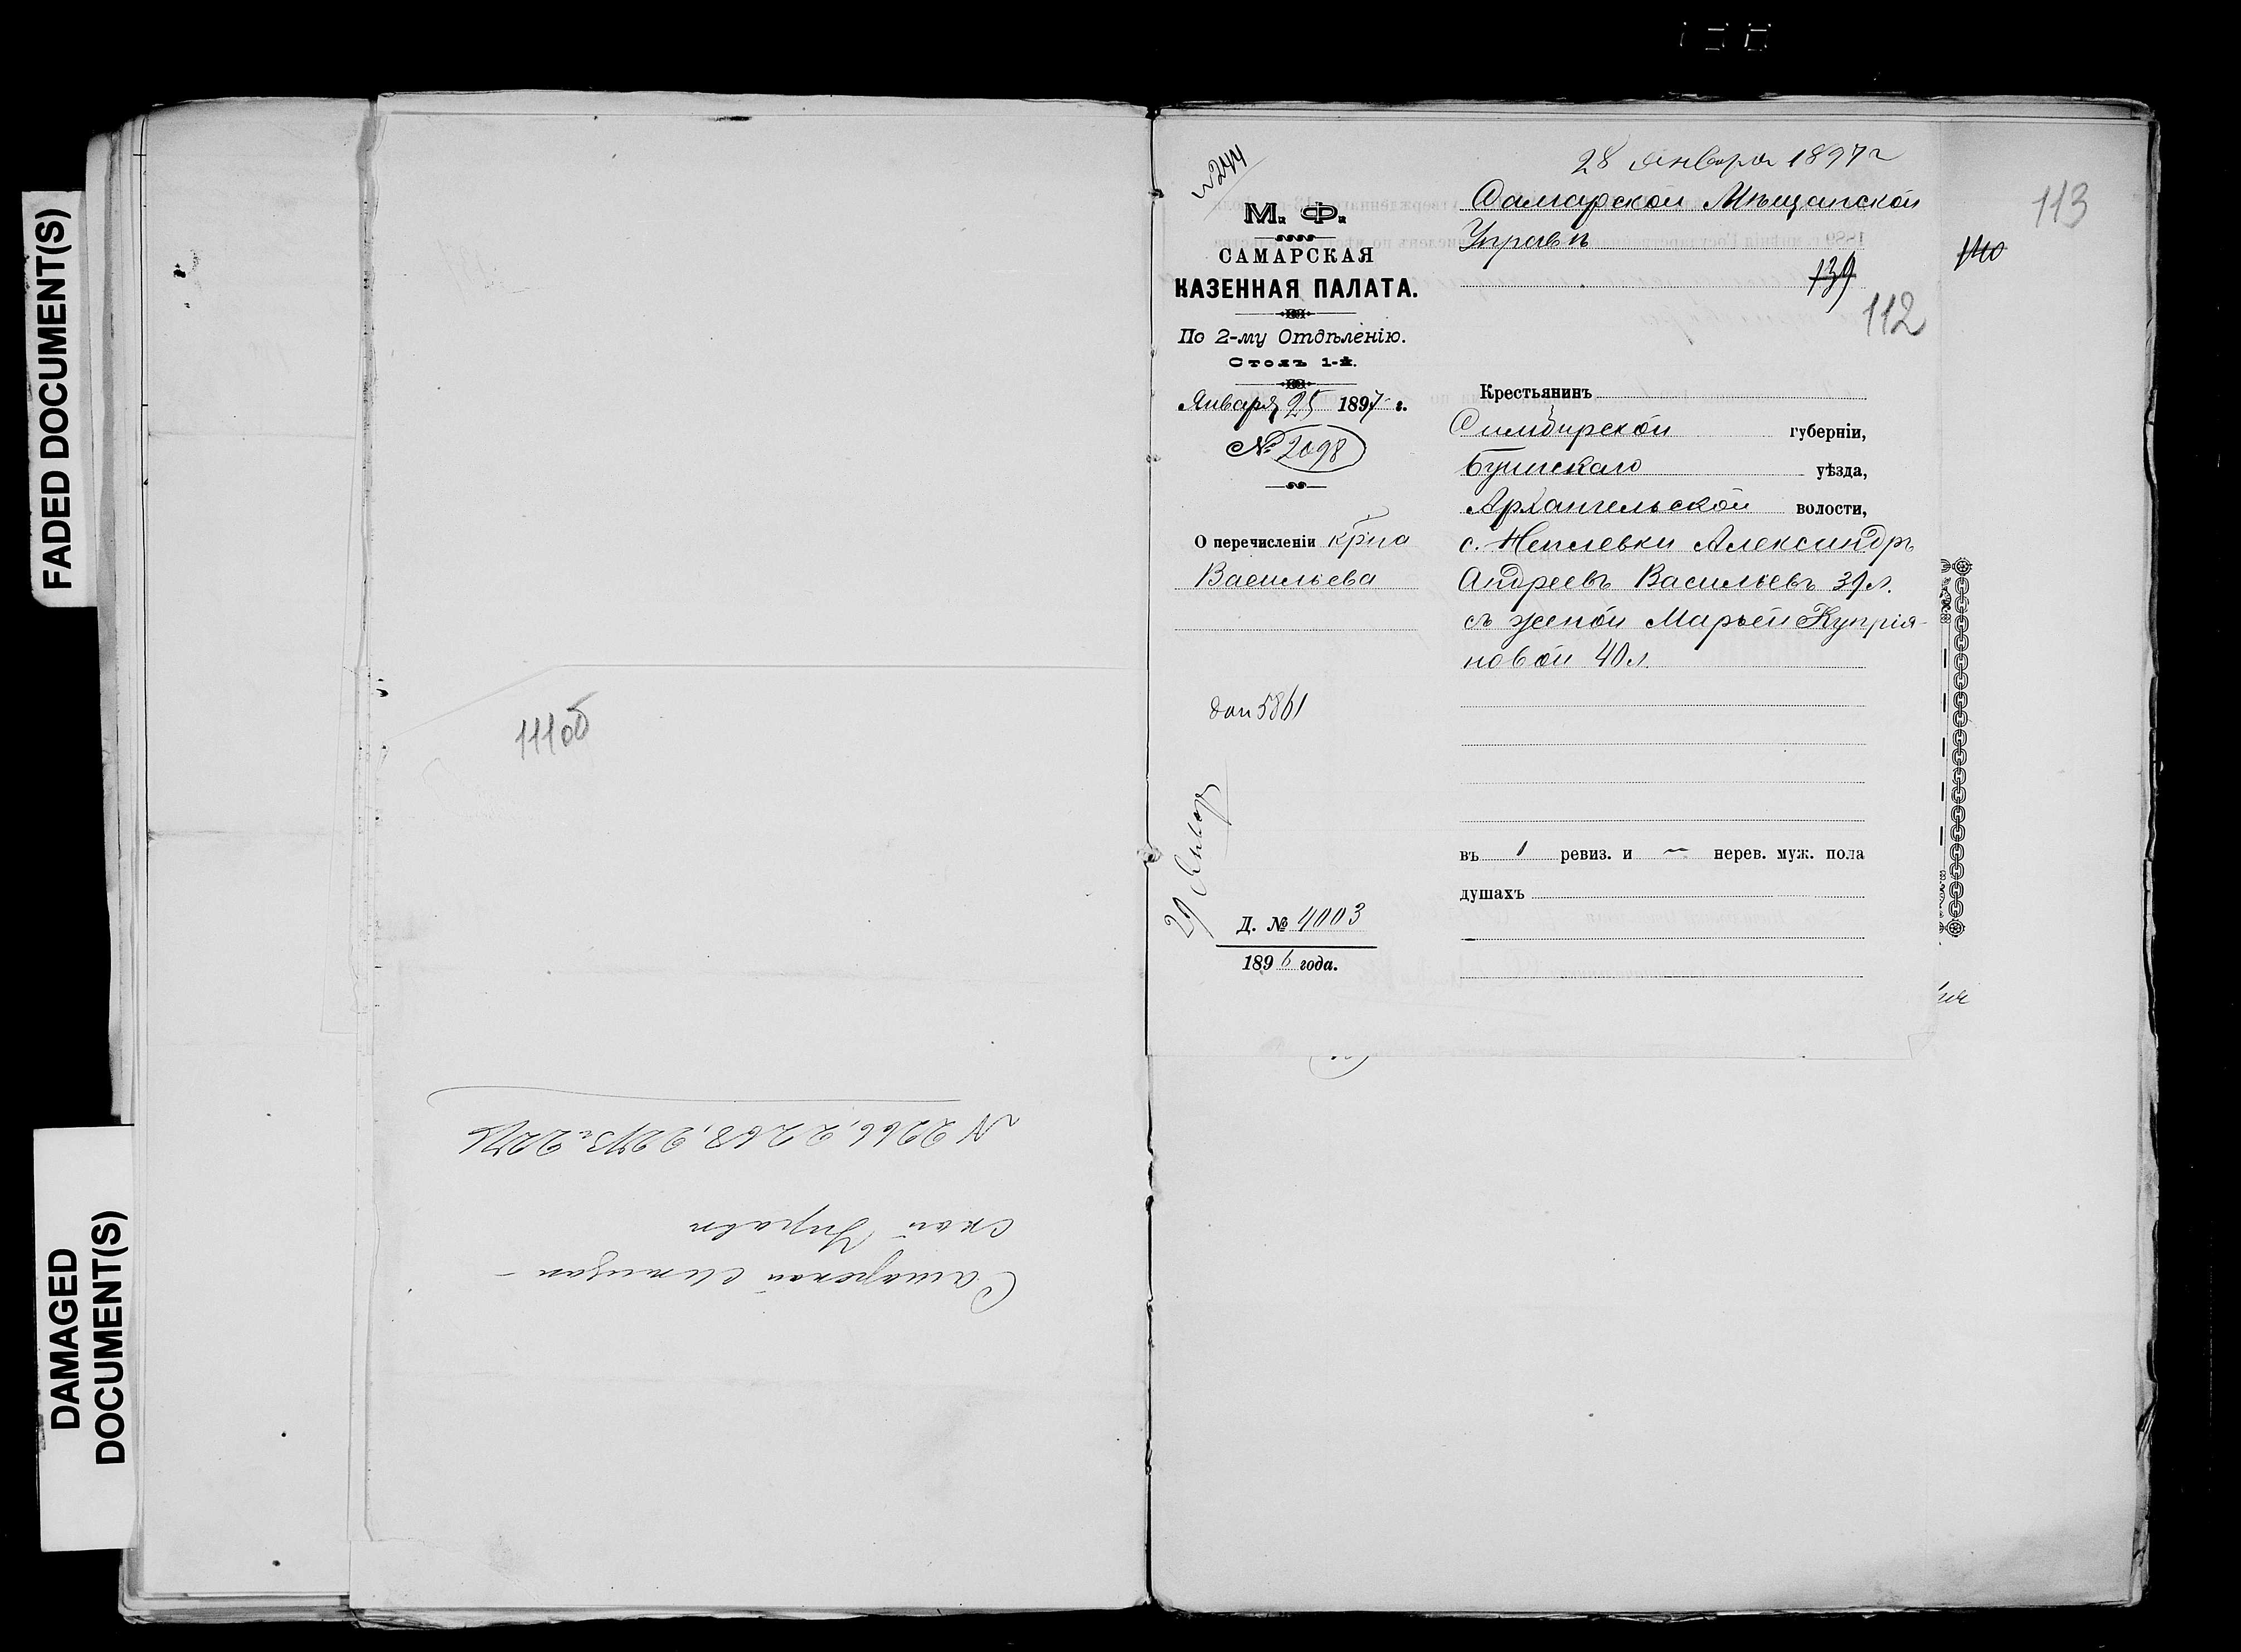 FADED DOCUMENT(S)
DAMAGED
DOCUMENT(S)
111 об
Самарской Мѣщан-
ской Управѣ
N 2266, 2268, 2273 и 2276
113
140
№ 244
М. Ф.
САМАРСКАЯ
КАЗЕННАЯ ПАЛАТА.
По 2-му Отдѣленію.
Столъ 1-й.
Января 25 1897 г.
№ 2098
О перечисленіи кр̃на
Васильева
5861
29 Январ
Д. № 4003
1896 года.
28 Января 1897 г
Самарской Мѣщанской
Управѣ
139
112
Крестьянинъ
Симбирской губерніи,
Буинскаго уѣзда,
Архангельской волости,
с. Александръ
Андреевъ Васильевъ 39 л.
съ женой Марьей Купрія-
новой 40 л.
въ 1 ревиз. и — нерев. муж. пола
душахъ